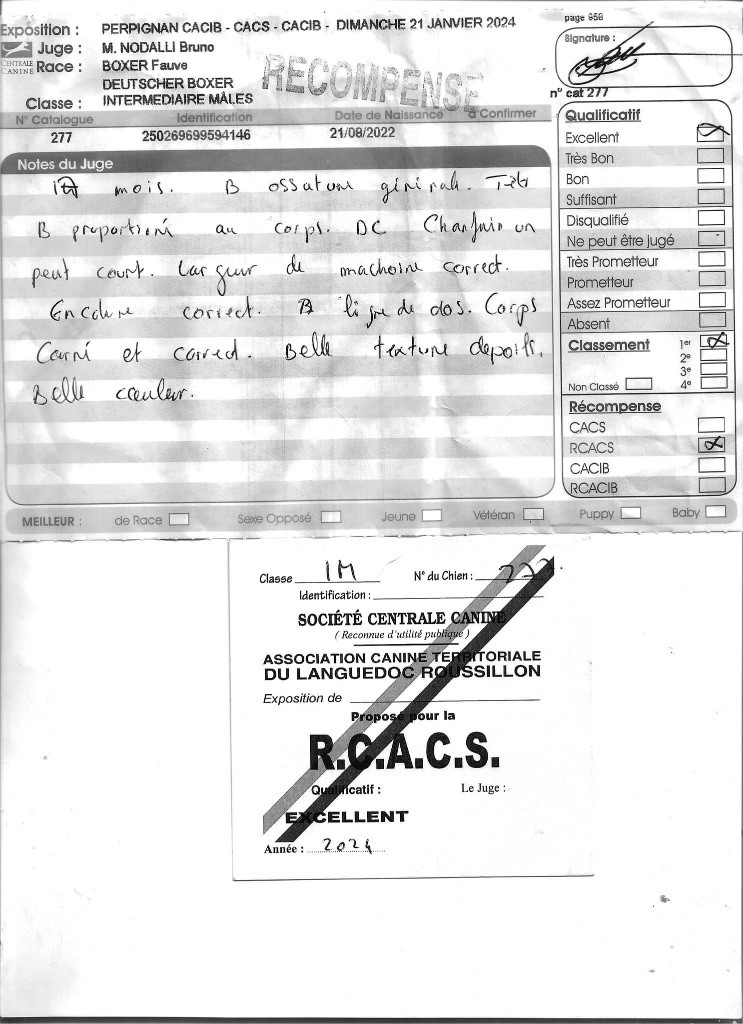 page 959
Exposition : PERPIGNAN CACIB - CACS - CACIB - DIMANCHE 21 JANVIER 2024
Signature :
CENTRALE CANINE
Juge : M. NODALLI Bruno
Race : BOXER Fauve
DEUTSCHER BOXER
RECOMPENSE
Classe : INTERMEDIAIRE MÂLES
n° cat 277
N° Catalogue Identification Date de Naissance à Confirmer
277 250269699594146 21/08/2022
Notes du Juge
mois. B ossature générale. Tête
B proportioné au corps. DC Chanfrin un
peut court. Largeur de machoire correct.
Encolure correct. B ligne de dos. Corps
Carré et correct. Belle texture de poils.
Belle couleur.
Qualificatif
Excellent
Très Bon
Bon
Suffisant
Disqualifié
Ne peut être jugé
Très Prometteur
Prometteur
Assez Prometteur
Absent
Classement 1er
2e
3e
Non Classé 4e
Récompense
CACS
RCACS
CACIB
RCACIB
MEILLEUR : de Race Sexe Opposé Jeune Vétéran Puppy Baby
Classe IM N° du Chien : 277.
Identification :
SOCIÉTÉ CENTRALE CANINE
( Reconnue d'utilité publique )
ASSOCIATION CANINE TERRITORIALE
DU LANGUEDOC ROUSSILLON
Exposition de
Proposé pour la
R.C.A.C.S.
Qualificatif : Le Juge :
EXCELLENT
Année : 2024